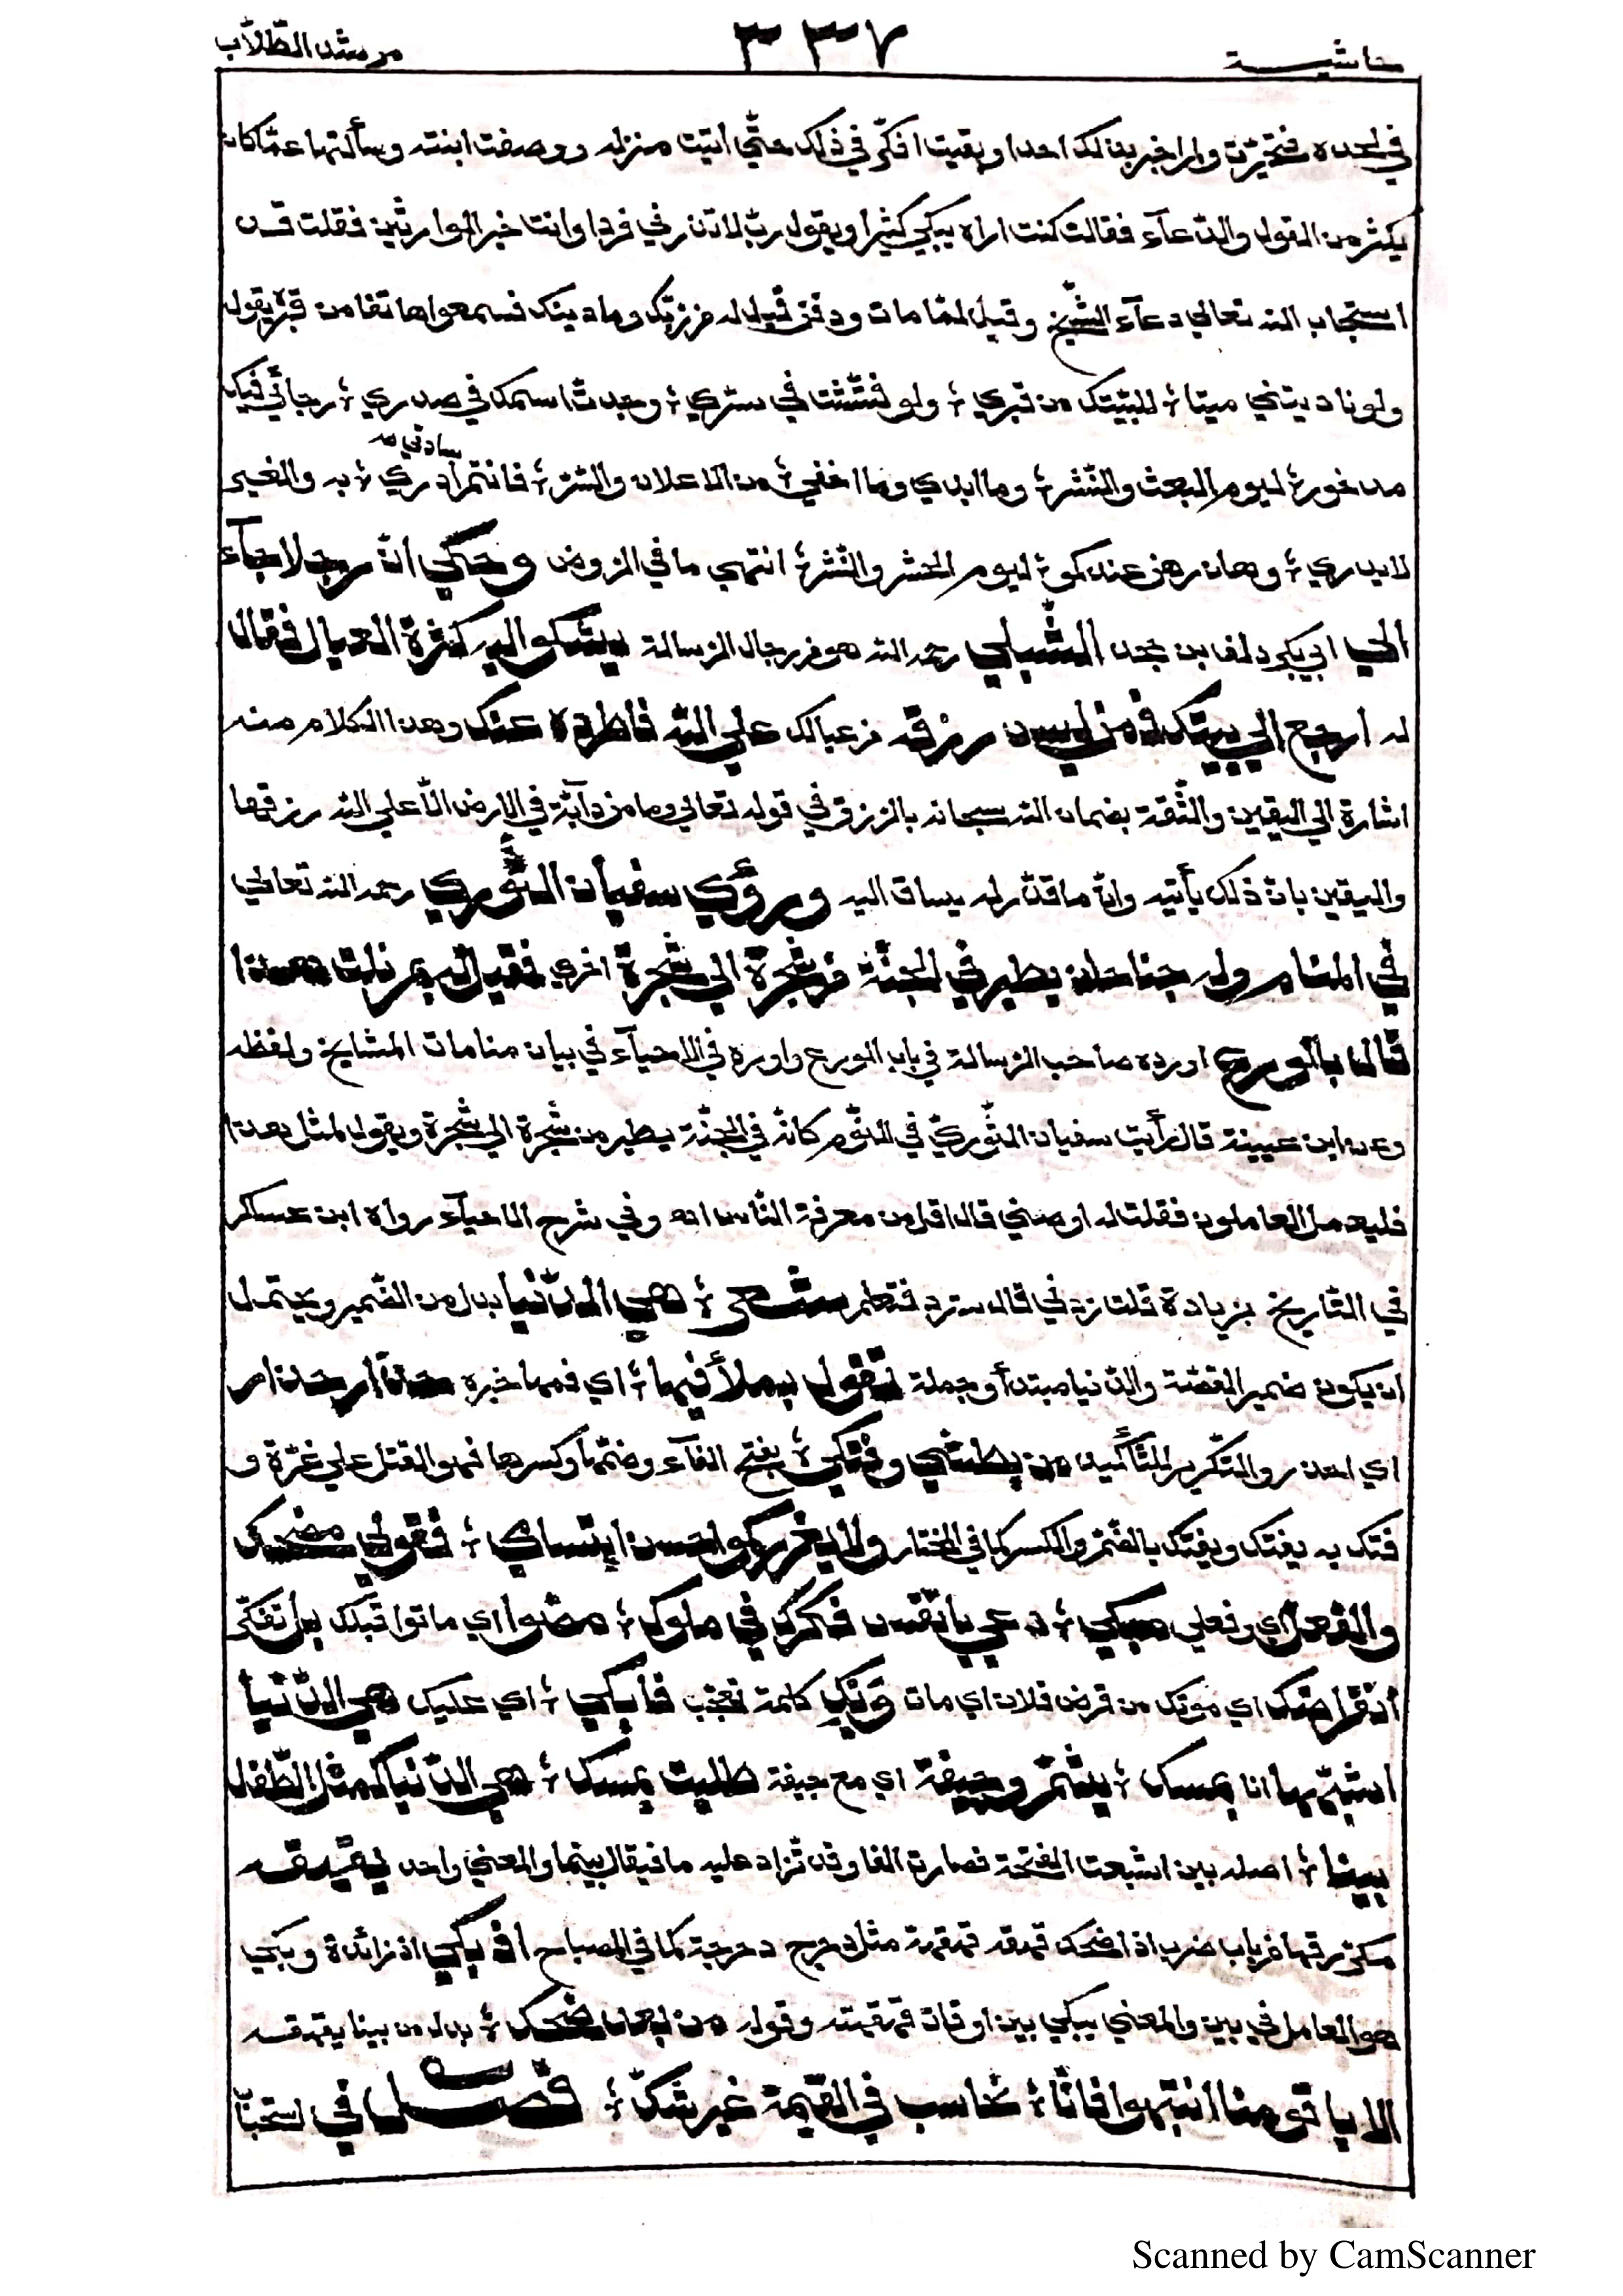 حاشية ٣٣٧ مرشد الطّلاّب
في لحده فتحيّرت ولم اخبر بذلك احدا وبقيت افكّر في ذلك حتّي اتيت منزله ووصفت ابنته وسألتها عمّا كان
يكثر من القول والدّعآء فقالت كنت اراه يبكي كثيرا ويقول ربّ لا تذرني فردا وانت خير الوارثين فقلت قد
استجاب الله تعالي دعآء الشّيخ وقيل لمّا مات ودفن قيل له من ربّك وما دينك فسمعوا هاتفا من قبره يقول
ولو ناديتني ميتا ؛ للبّيتك من قبري ؛ ولو فتّشت في سرّي ؛ وجدت اسمك في صدري ؛ رجائي فيك
مذخورة ليوم البعث والنّشر ؛ وما ابدي وما اخفي ؛ من الاعلان والسّرّ ؛ فانتم ادري ؛ به والغير
لا يدري ؛ وها رهن عندكمو ؛ ليوم الحشر والنّشر ؛ انتهي ما في الروض وحكي انّ رجلا جآء
الي ابي بكر دلف بن جحد الشّبلي رحمه الله هو من رجال الرّسالة يشكو اليه كثرة العيال فقال
له ارجع الي بيتك فمن ليس رزقه من عيالك علي اللّه فاطرده عنك وهذا الكلام منه
اشارة الي اليقين والثّقة بضمان الله سبحانه بالرّزق في قوله تعالي وما من دآبّة في الارض الّا علي الله رزقها
واليقين بانّ ذلك يأتيه وانّ ما قدّر له يساق اليه ورؤي سفيان الثّوري رحمه الله تعالي
في المنام وله جناحان يطير في الجنّة من شجرة الي شجرة اخري فقيل له بم نلت هذا
قال بالورع اورده صاحب الرّسالة في باب الورع واوره في الاحيآء في بيان منامات المشايخ ولفظه
وعن ابن عيينة قال رأيت سفيان الثّوريّ في النّوم كانّه في الجنّة يطير من شجرة الي شجرة ويقول لمثل هذا
فليعمل العاملون فقلت له اوصني قال اقل من معرفة النّاس اه وفي شرح الاحيآء رواه ابن عساكر
في التّاريخ بزيادة قلت زدني قال سترد فتعلم شعر ؛ هي الدّنيا بدل من الضّمير ويحتمل
ان يكون ضمير القصّة والدّنيا مبتدأ وجملة تقول بملأ فيها ؛ اي فمها خبره حذار حذار
اي احذر والتّكرير للتّأكيد من بطشي وفتكي ؛ بفتح الفآء وضمّها وكسرها فهو القتل علي غرّة و
فتك به يفتك ويفتك بالضّمّ والكسر كما في المختار ولا يغرركمو حسن ابتسامي ؛ فقولي مضحك
والفعل اي وفعلي مبكي ؛ دعي يا نفس فكرك في ملوك ؛ مضوا اي ماتوا قبلك بل تفكّري
انقراضك اي موتك من قرض فلان اي مات ويك كلمة تعجّب فابكي ؛ اي عليك هي الدّنيا
اشبّهها انا بمسك ؛ يشمّ وجيفة اي مع جيفة طليت بمسك ؛ هي الدّنيا كمثل الطّفل
بينا ؛ اصله بين اشبعت الفتحة فصارت الفا وقد تزاد عليه ما فيقال بينما والمعني واحد يقهقه
مكرّر قها من باب ضرب اذا ضحك قهقه قهقهة مثل دحرج دحرجة كما في المصباح اذ بكي اذ زائدة ويبكي
هو العامل في بين والمعني يبكي بين اوقات قهقهته وقوله من بعد ضحك ؛ بدل من بينا يقهقه
الا يا قومنا انتبهوا فانّا ؛ نحاسب في القيمة غير شكّ ؛ فصل في استحبا
Scanned by CamScanner